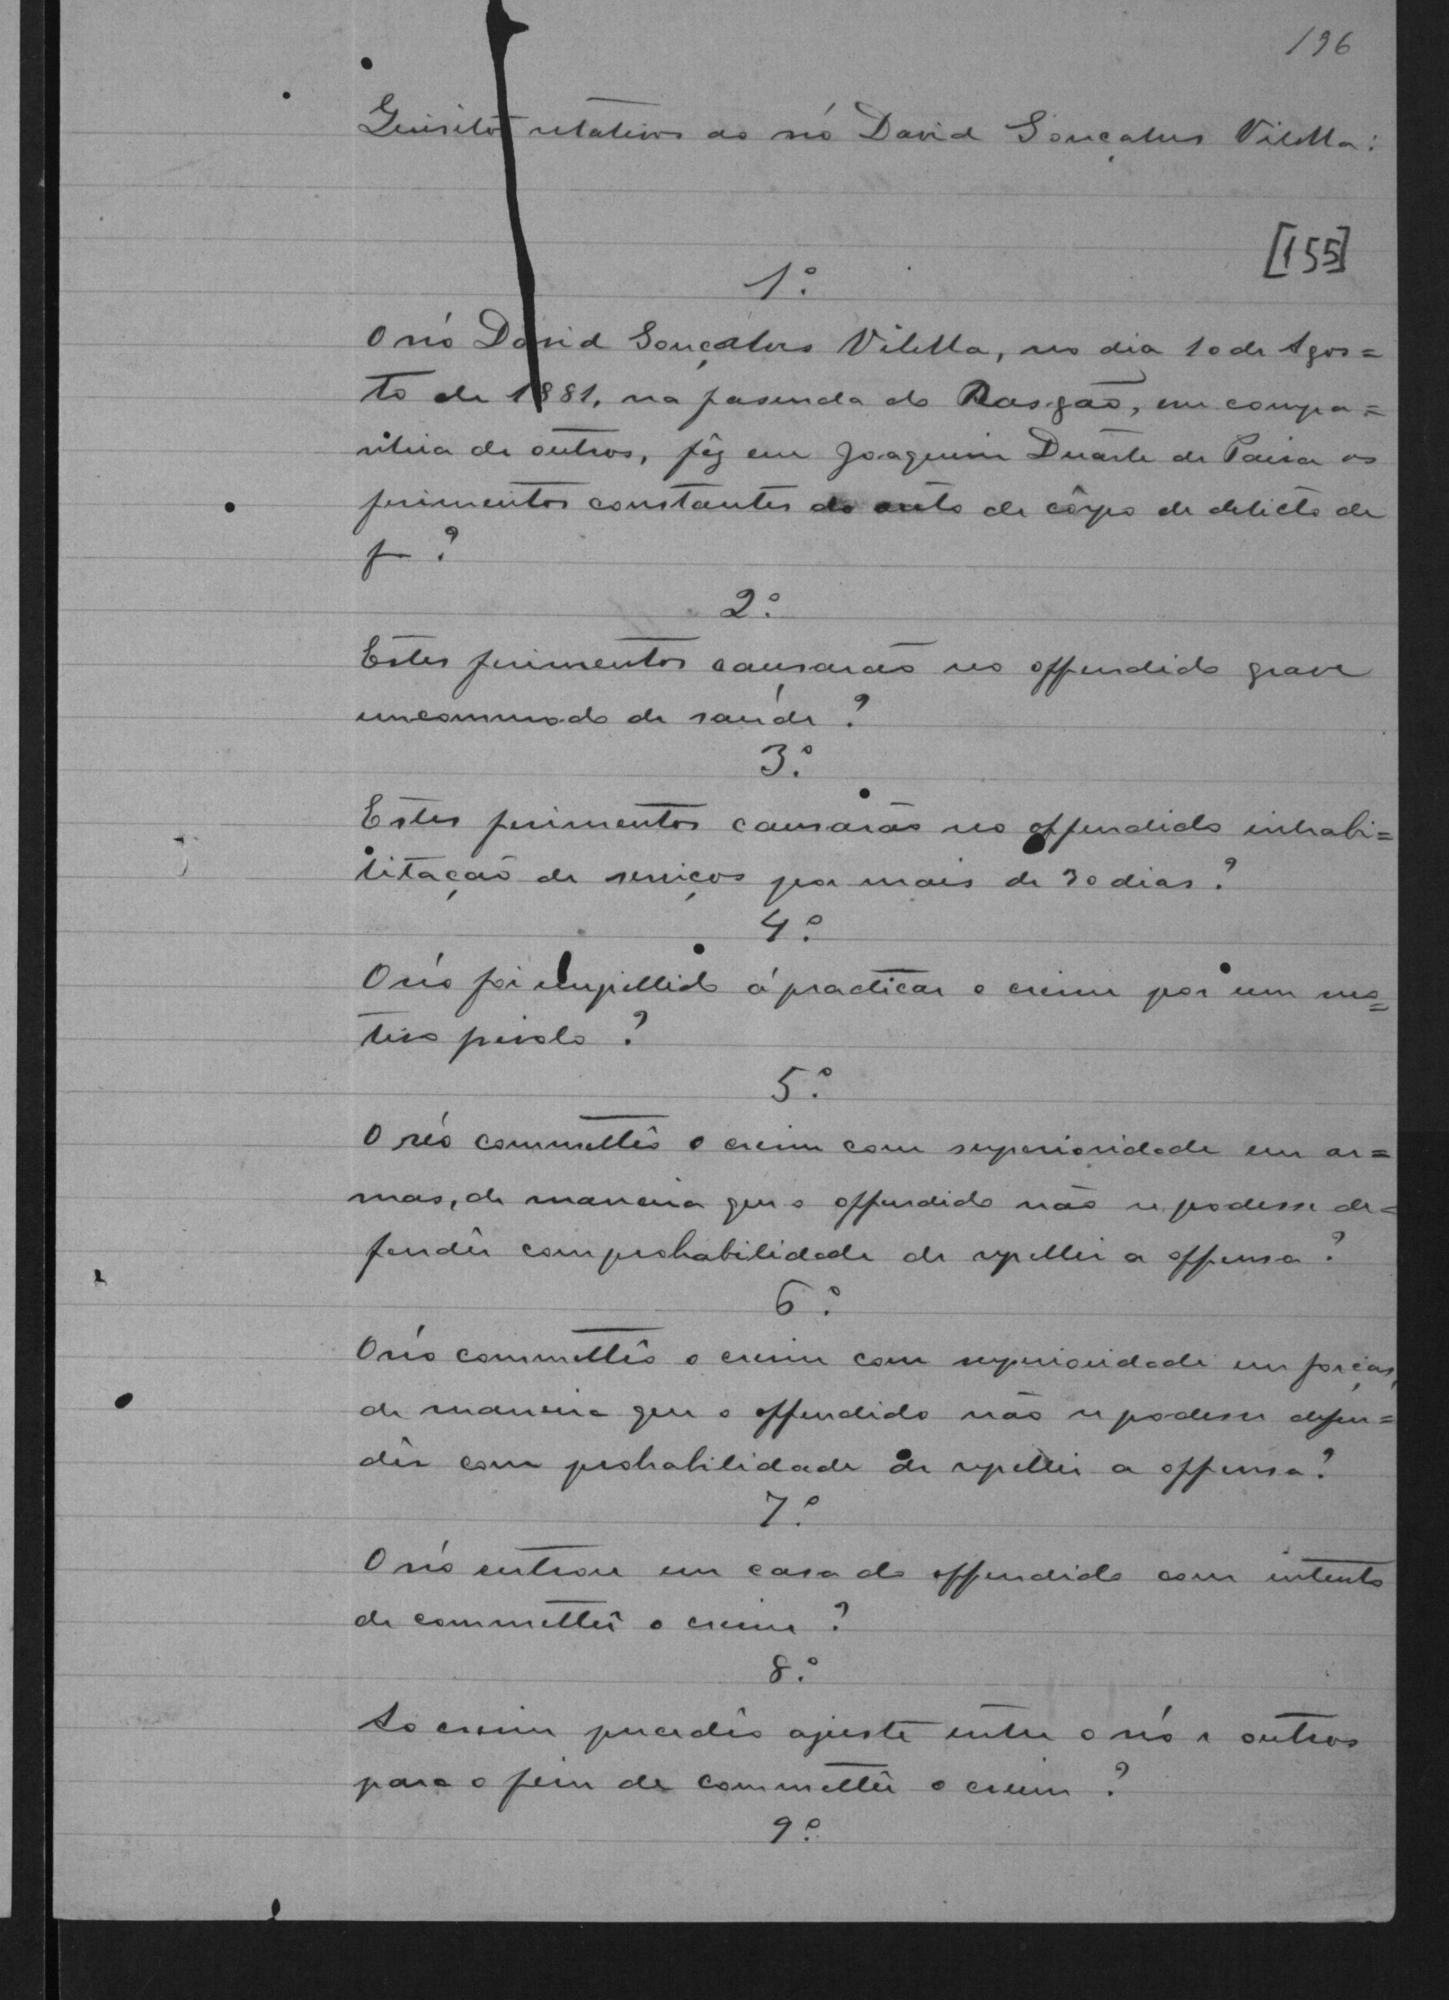 196
Quisitos relativos ao réo David Gonçalves Vilella:
[155]
1º.
O réo David Gonçalves Vilella, no dia 10 de Agos=
to de 1881, na fasenda do Rasgão, em compa=
nhia de outros, fêz em Joaquim Duarte de Paiva os
ferimentos constantes do auto de côrpo de delicto de
f— ?
2º.
Estes ferimentos causarão no offendido grave
incommodo de saúde ?
3º.
Estes ferimentos causarão no offendido inhabi=
litação de serviços por mais de 30 dias ?
4º.
O réo foi impellido á practicar o crime por um mo=
tivo frivolo ?
5º.
O réo commettêo o crime com superioridade em ar=
mas, de maneira que o offendido não se podesse de=
fendêr com probabilidade de repellir a offensa ?
6º.
O réo commettêo o crime com superioridade em forças,
de maneira que o offendido não se podesse defen=
dêr com probabilidade de repellir a offensa ?
7º.
O réo entrou em casa do offendido com intento
de commettêr o crime ?
8º.
Ao crime precedêo ajuste entre o réo e outros
para o fim de commettêr o crime ?
9º.